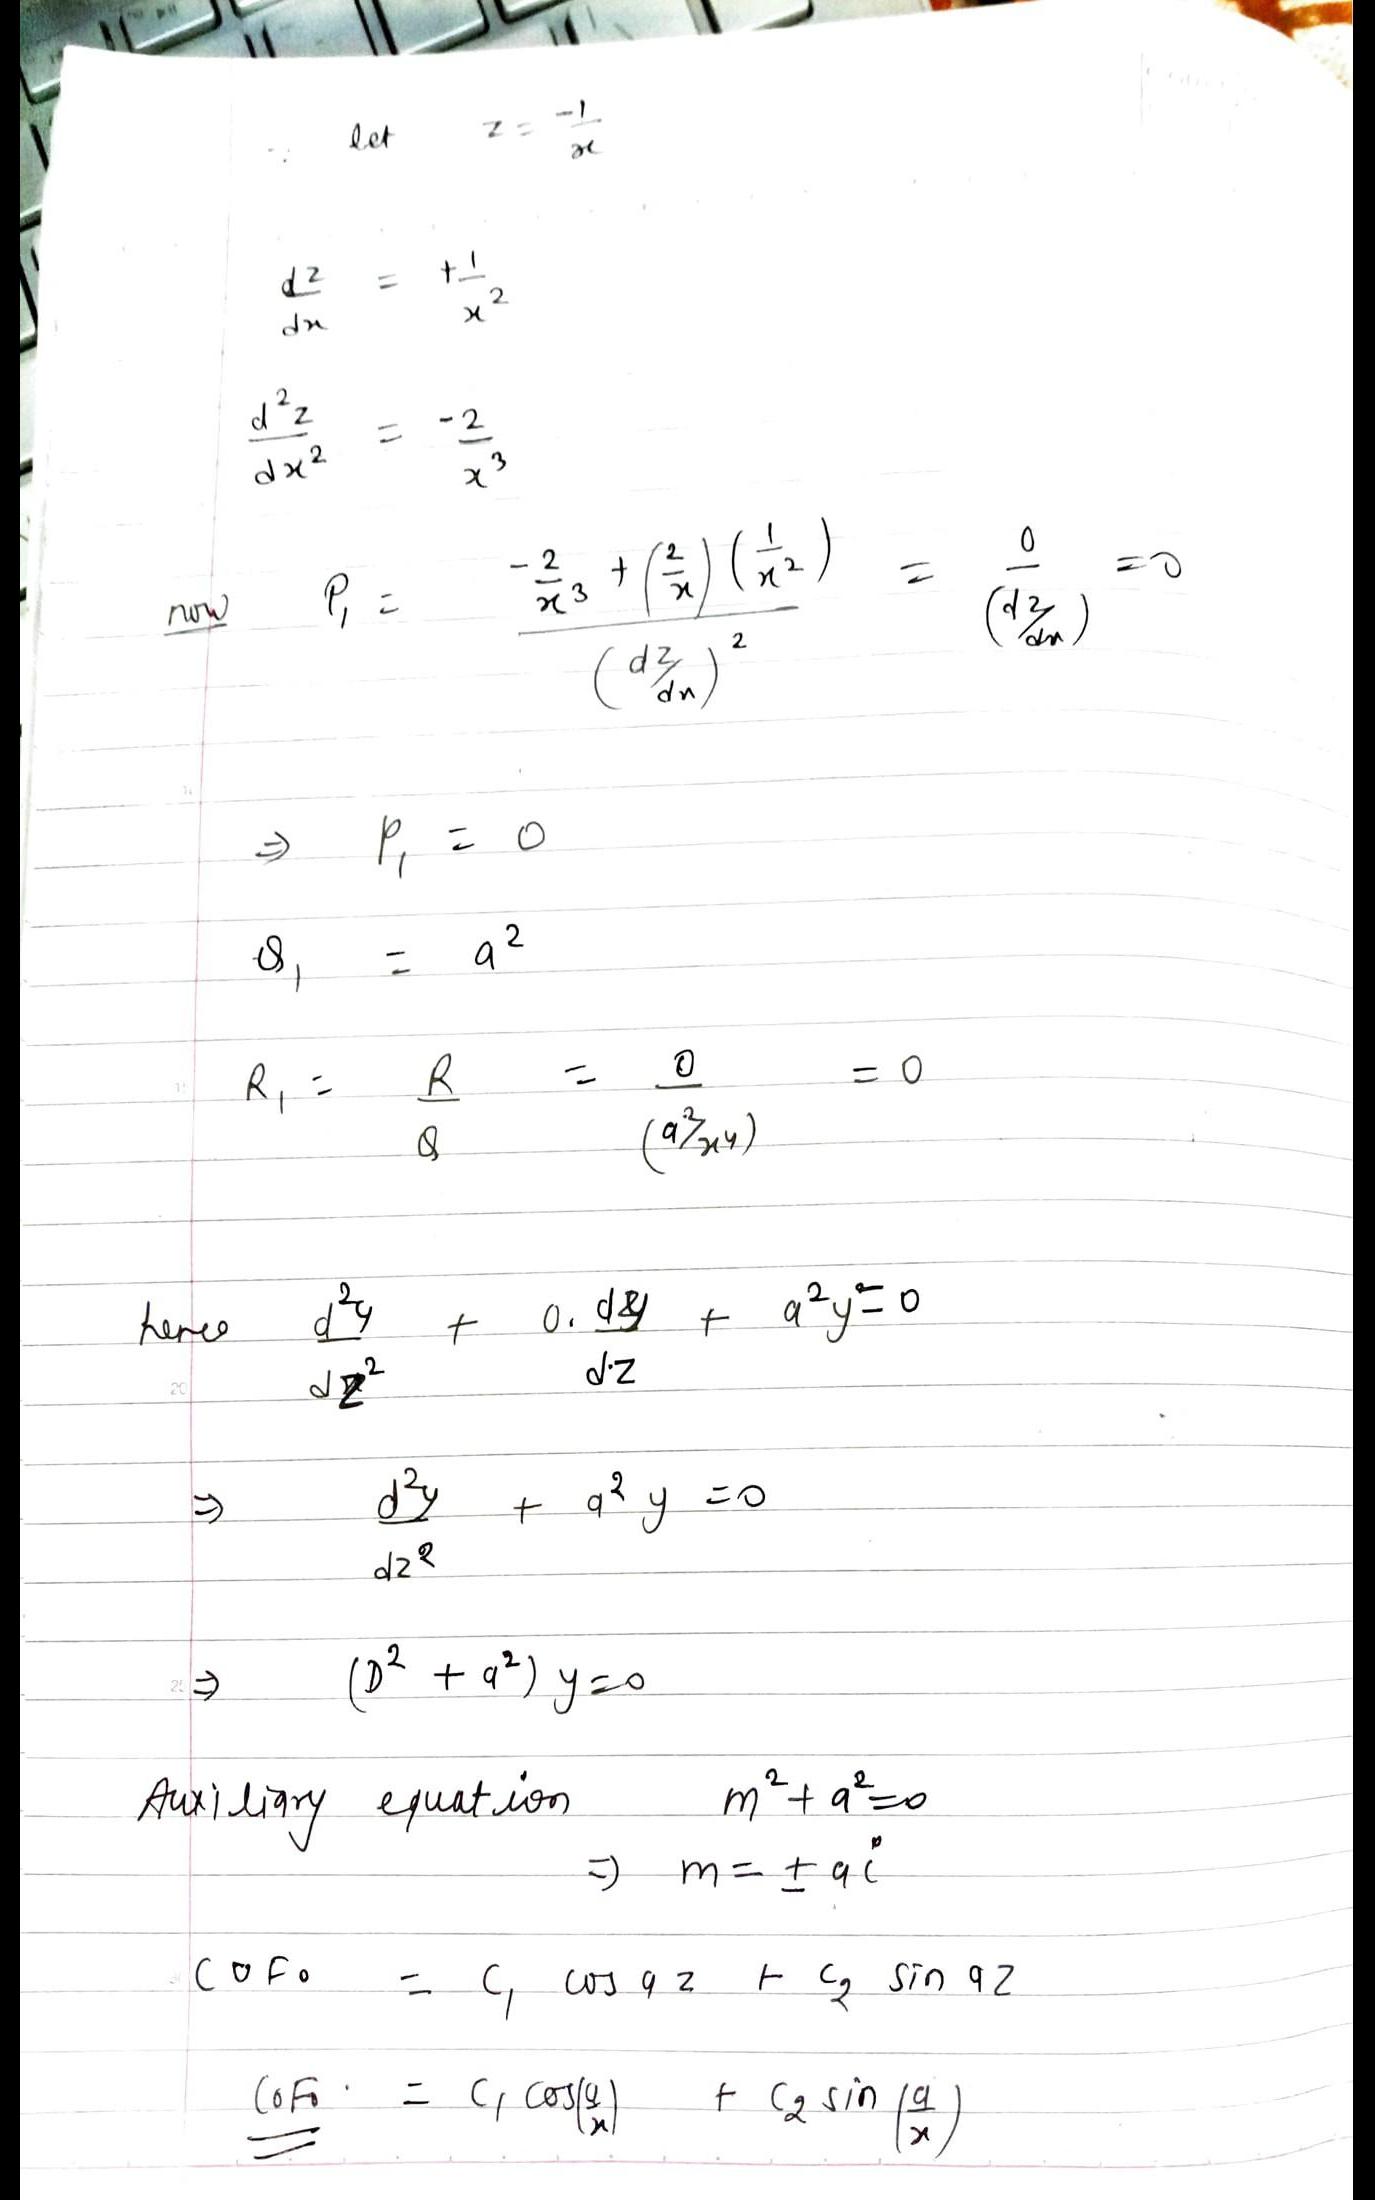 ∵ let z = -1/x
dz/dx = +1/x²
d²z/dx² = -2/x³
now P₁ = (-2/x³ + (2/x)(1/x²))/(dz/dx)² = 0/(dz/dx) = 0
⇒ P₁ = 0
Q₁ = a²
R₁ = R/Q = 0/(a²/x⁴) = 0
hence d²y/dz² + 0. dy/dz + a²y = 0
⇒ d²y/dz² + a² y = 0
⇒ (D² + a²) y = 0
Auxiliary equation m² + a² = 0
⇒ m = ± ai
C.F. = C₁ cos az + C₂ sin az
C.F. = C₁ cos(a/x) + C₂ sin(a/x)